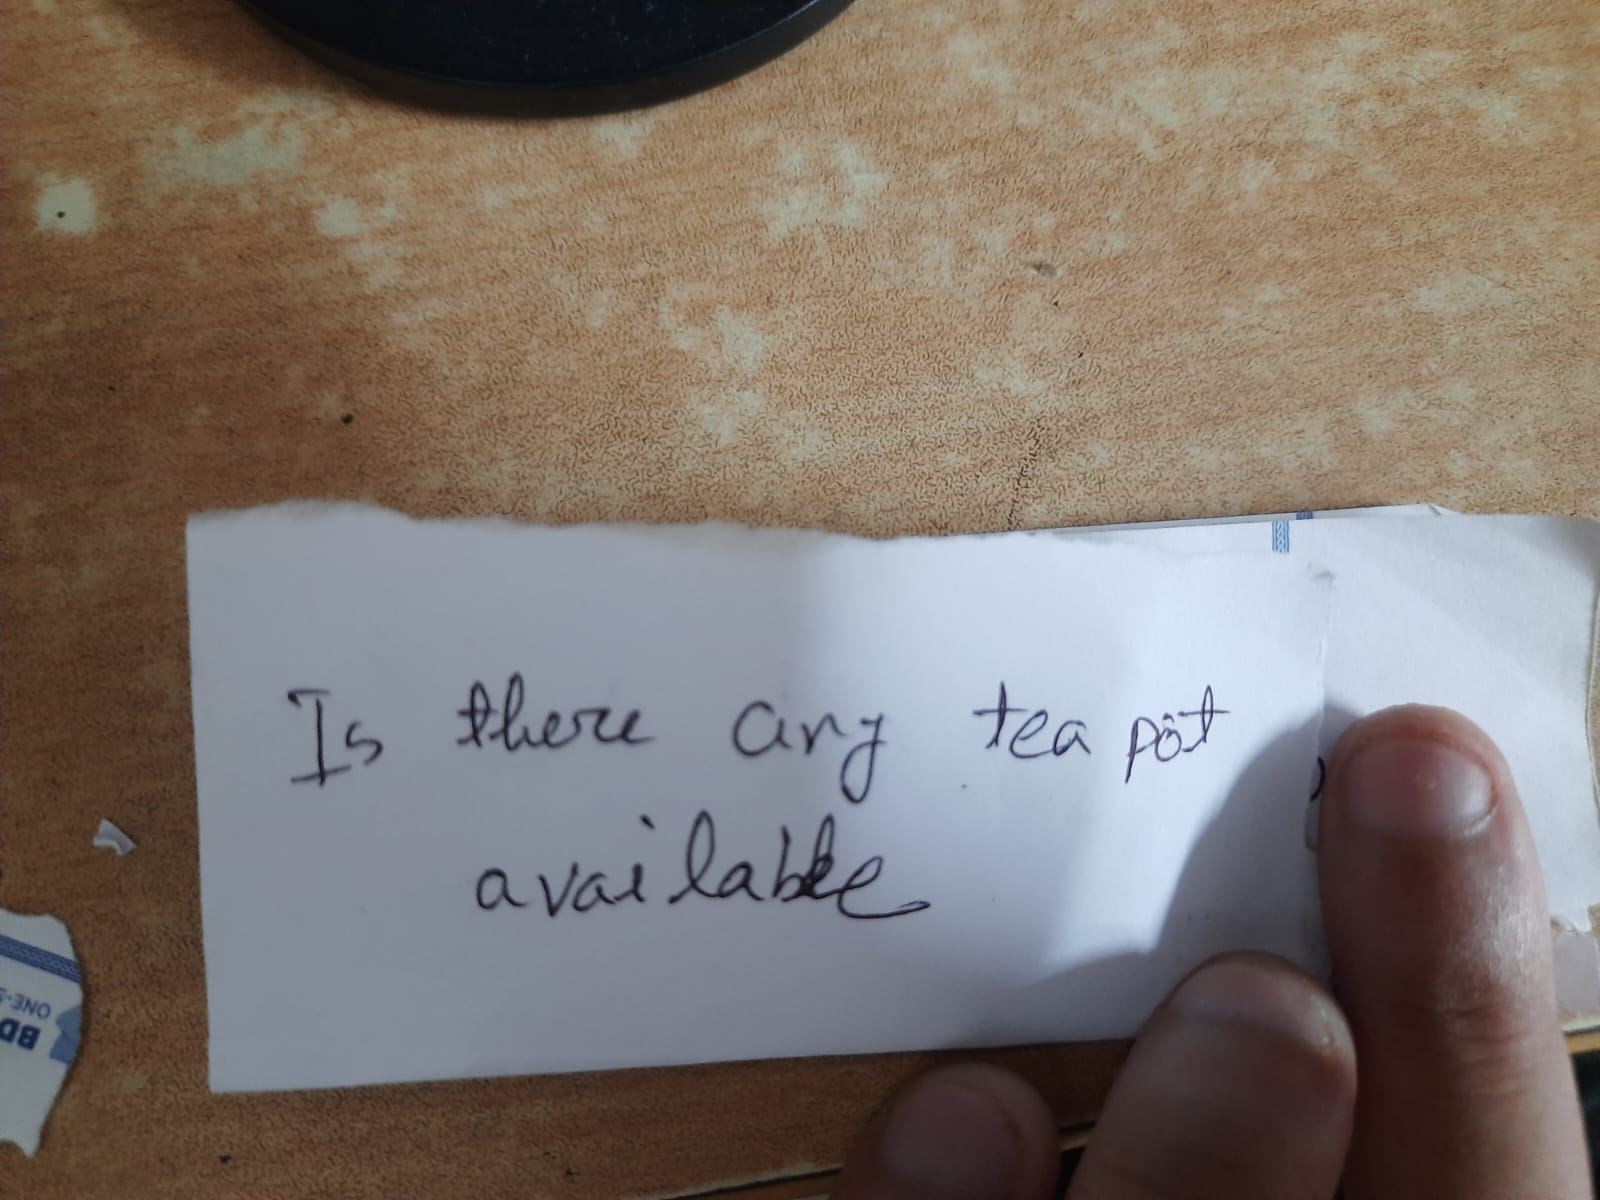 Is there any tea pot
available
ONE-
BD